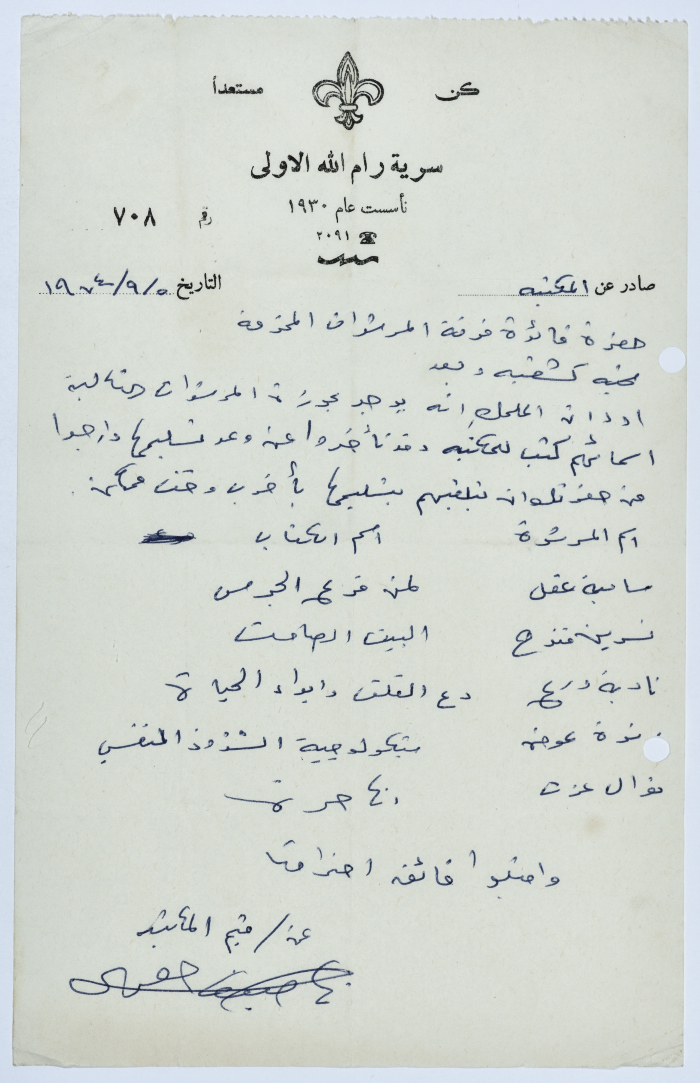 كن مستعداً
سرية رام الله الاولى
تأسست عام ١٩٣٠
رقم ٧٠٨
☎ ٢٠٩١
صادر عن المكتبه التاريخ ٥/٩/١٩٧٤
حضرة قائدة فرقة المرشدات المحترمة
تحيه كشفيه وبعد
اود ان اعلمك انه يوجد بحوزة المرشدات التالية
اسمائهم كتب للمكتبه وقد تأخروا عن وعد تسليمها وارجوا
من حضرتك ان تبلغيهم بتسليمها بأقرب وقت ممكن.
اسم المرشدة اسم الكتاب
سامية عقل لمن تقرع الجرس
نسرين قندح البيت الصامت
نادية درع دع القلق وابداء الحياة
ندوة عوض سيكولوجية الشذوذ النفسي
نوال عزت انها حرة
واقبلوا فائق احترامنا
عن/ قيم المكتبه